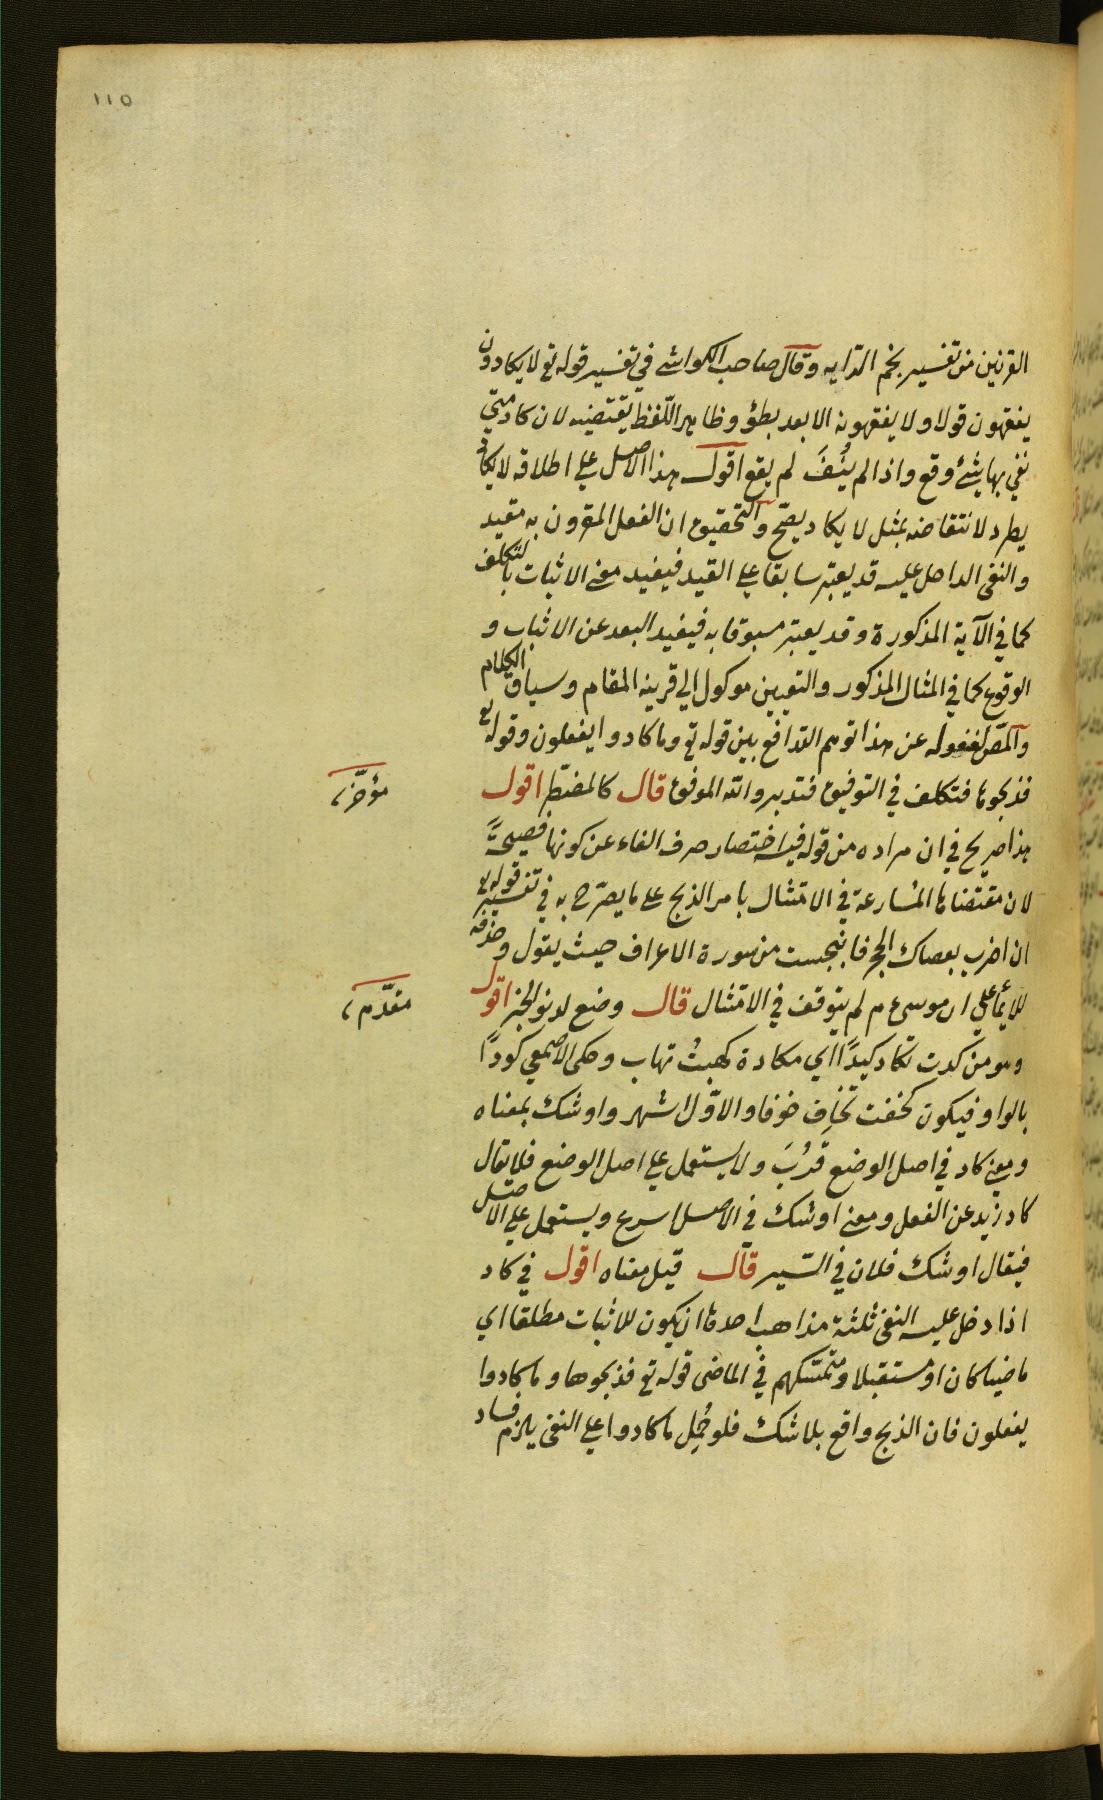 ١١٥
القرنين من تفسير بخم الداية وقال صاحب الكواشي في تفسير قوله تع لا يكادون
يفقهون قولا ولا يفقهونه الا بعد بطؤ وظاهر اللفظ يقتضيه لان كاد متى
نفي بها شئ وقع واذا لم يُنفَ لم يقع اقول هذا الاصل على اطلاقه لا يكاد
يطرد لانتقاضه بمثل لا يكاد يصح والتحقيق ان الفعل المقرون به مقيد
والنفى الداخل عليه قد يعتبر سابقا على القيد فيفيد معنى الاثبات بالتكلف
كما في الآية المذكورة وقد يعتبر مسبوقا به فيفيد البعد عن الاثبات و
الوقوع كما في المثال المذكور والتعيين موكول الى قرينة المقام وسياق الكلام
والمص لغفوله عن هذا توهم التدافع بين قوله تع وما كادوا يفعلون وقوله تع
فذبحوها فتكلف في التوفيق فتدبر والله الموفق قال كالمضطر اقول
مؤخر
هذا صريح في ان مراده من قوله فيه اختصار صرف الفاء عن كونها فصيحةً
لان مقتضاها المسارعة في الامتثال بامر الذبح على ما يصرح به في تفسير قوله تع
ان اضرب بعصاك الحجر فانبجست من سورة الاعراف حيث يقول وحذفه
للايماء على ان موسى ع م لم يتوقف في الامتثال قال وضع لدنو الخبر اقول
مقدّم
وهو من كدت تكاد كيدًا اي مكادة كهبتُ تهاب وحكى الاصمعي كودًا
بالواو فيكون كخفت تخاف خوفا والاول اشهر واوشك بمعناه
ومعنى كاد في اصل الوضع قَرُبَ ولا يستعمل على اصل الوضع فلا يقال
كاد زيد عن الفعل ومعنى اوشك في الاصل اسرع ويستعمل على الاصل
فيقال اوشك فلان في السير قال قيل معناه اقول في كاد
اذا دخل عليه النفى ثلثة مذاهب احدها ان يكون للاثبات مطلقا اي
ماضيا كان او مستقبلا ومتمسكهم في الماضى قوله تع فذبحوها وما كادوا
يفعلون فان الذبح واقع بلا شك فلو حُمِل ما كادوا على النفى يلزم فساد